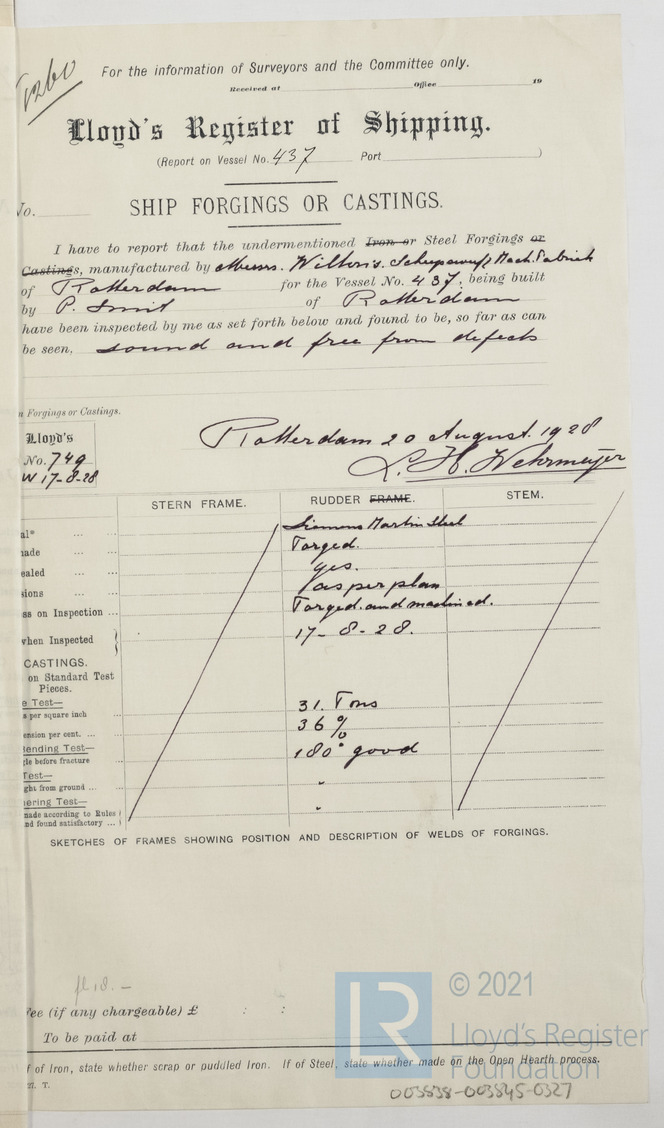 1260
For the information of Surveyors and the Committee only.
Received at Office 19
Lloyd's Register of Shipping.
(Report on Vessel No. 437 Port )
No. SHIP FORGINGS OR CASTINGS.
I have to report that the undermentioned Iron or Steel Forgings or
Castings, manufactured by Messrs. Wilton's. Scheepswerf, Mach. Fabriek
of Rotterdam for the Vessel No. 437, being built
by P. Smit of Rotterdam
have been inspected by me as set forth below and found to be, so far as can
be seen, sound and free from defects
n Forgings or Castings.
Rotterdam 20 August. 1928
Lloyd's
No. 749
W 17-8-28
L. H. Wehrmeyer
STERN FRAME. RUDDER FRAME. STEM.
al* ... ... Siemens Martin Steel
ade ... ... Forged.
ealed ... ... yes.
sions ... ... as per plan
ss on Inspection ... Forged. and machined.
when Inspected 17-8-28.
CASTINGS.
on Standard Test
Pieces.
e Test—
s per square inch ... 31. Tons
ension per cent. ... ... 36 %
Bending Test—
gle before fracture ... 180° good
Test—
ght from ground ... ... "
ering Test—
made according to Rules
nd found satisfactory ... "
SKETCHES OF FRAMES SHOWING POSITION AND DESCRIPTION OF WELDS OF FORGINGS.
fl 18. –
Fee (if any chargeable) £ : :
To be paid at
If of Iron, state whether scrap or puddled Iron. If of Steel, state whether made on the Open Hearth process.
T.
LR
© 2021
Lloyd's Register
Foundation
003838-003845-0327